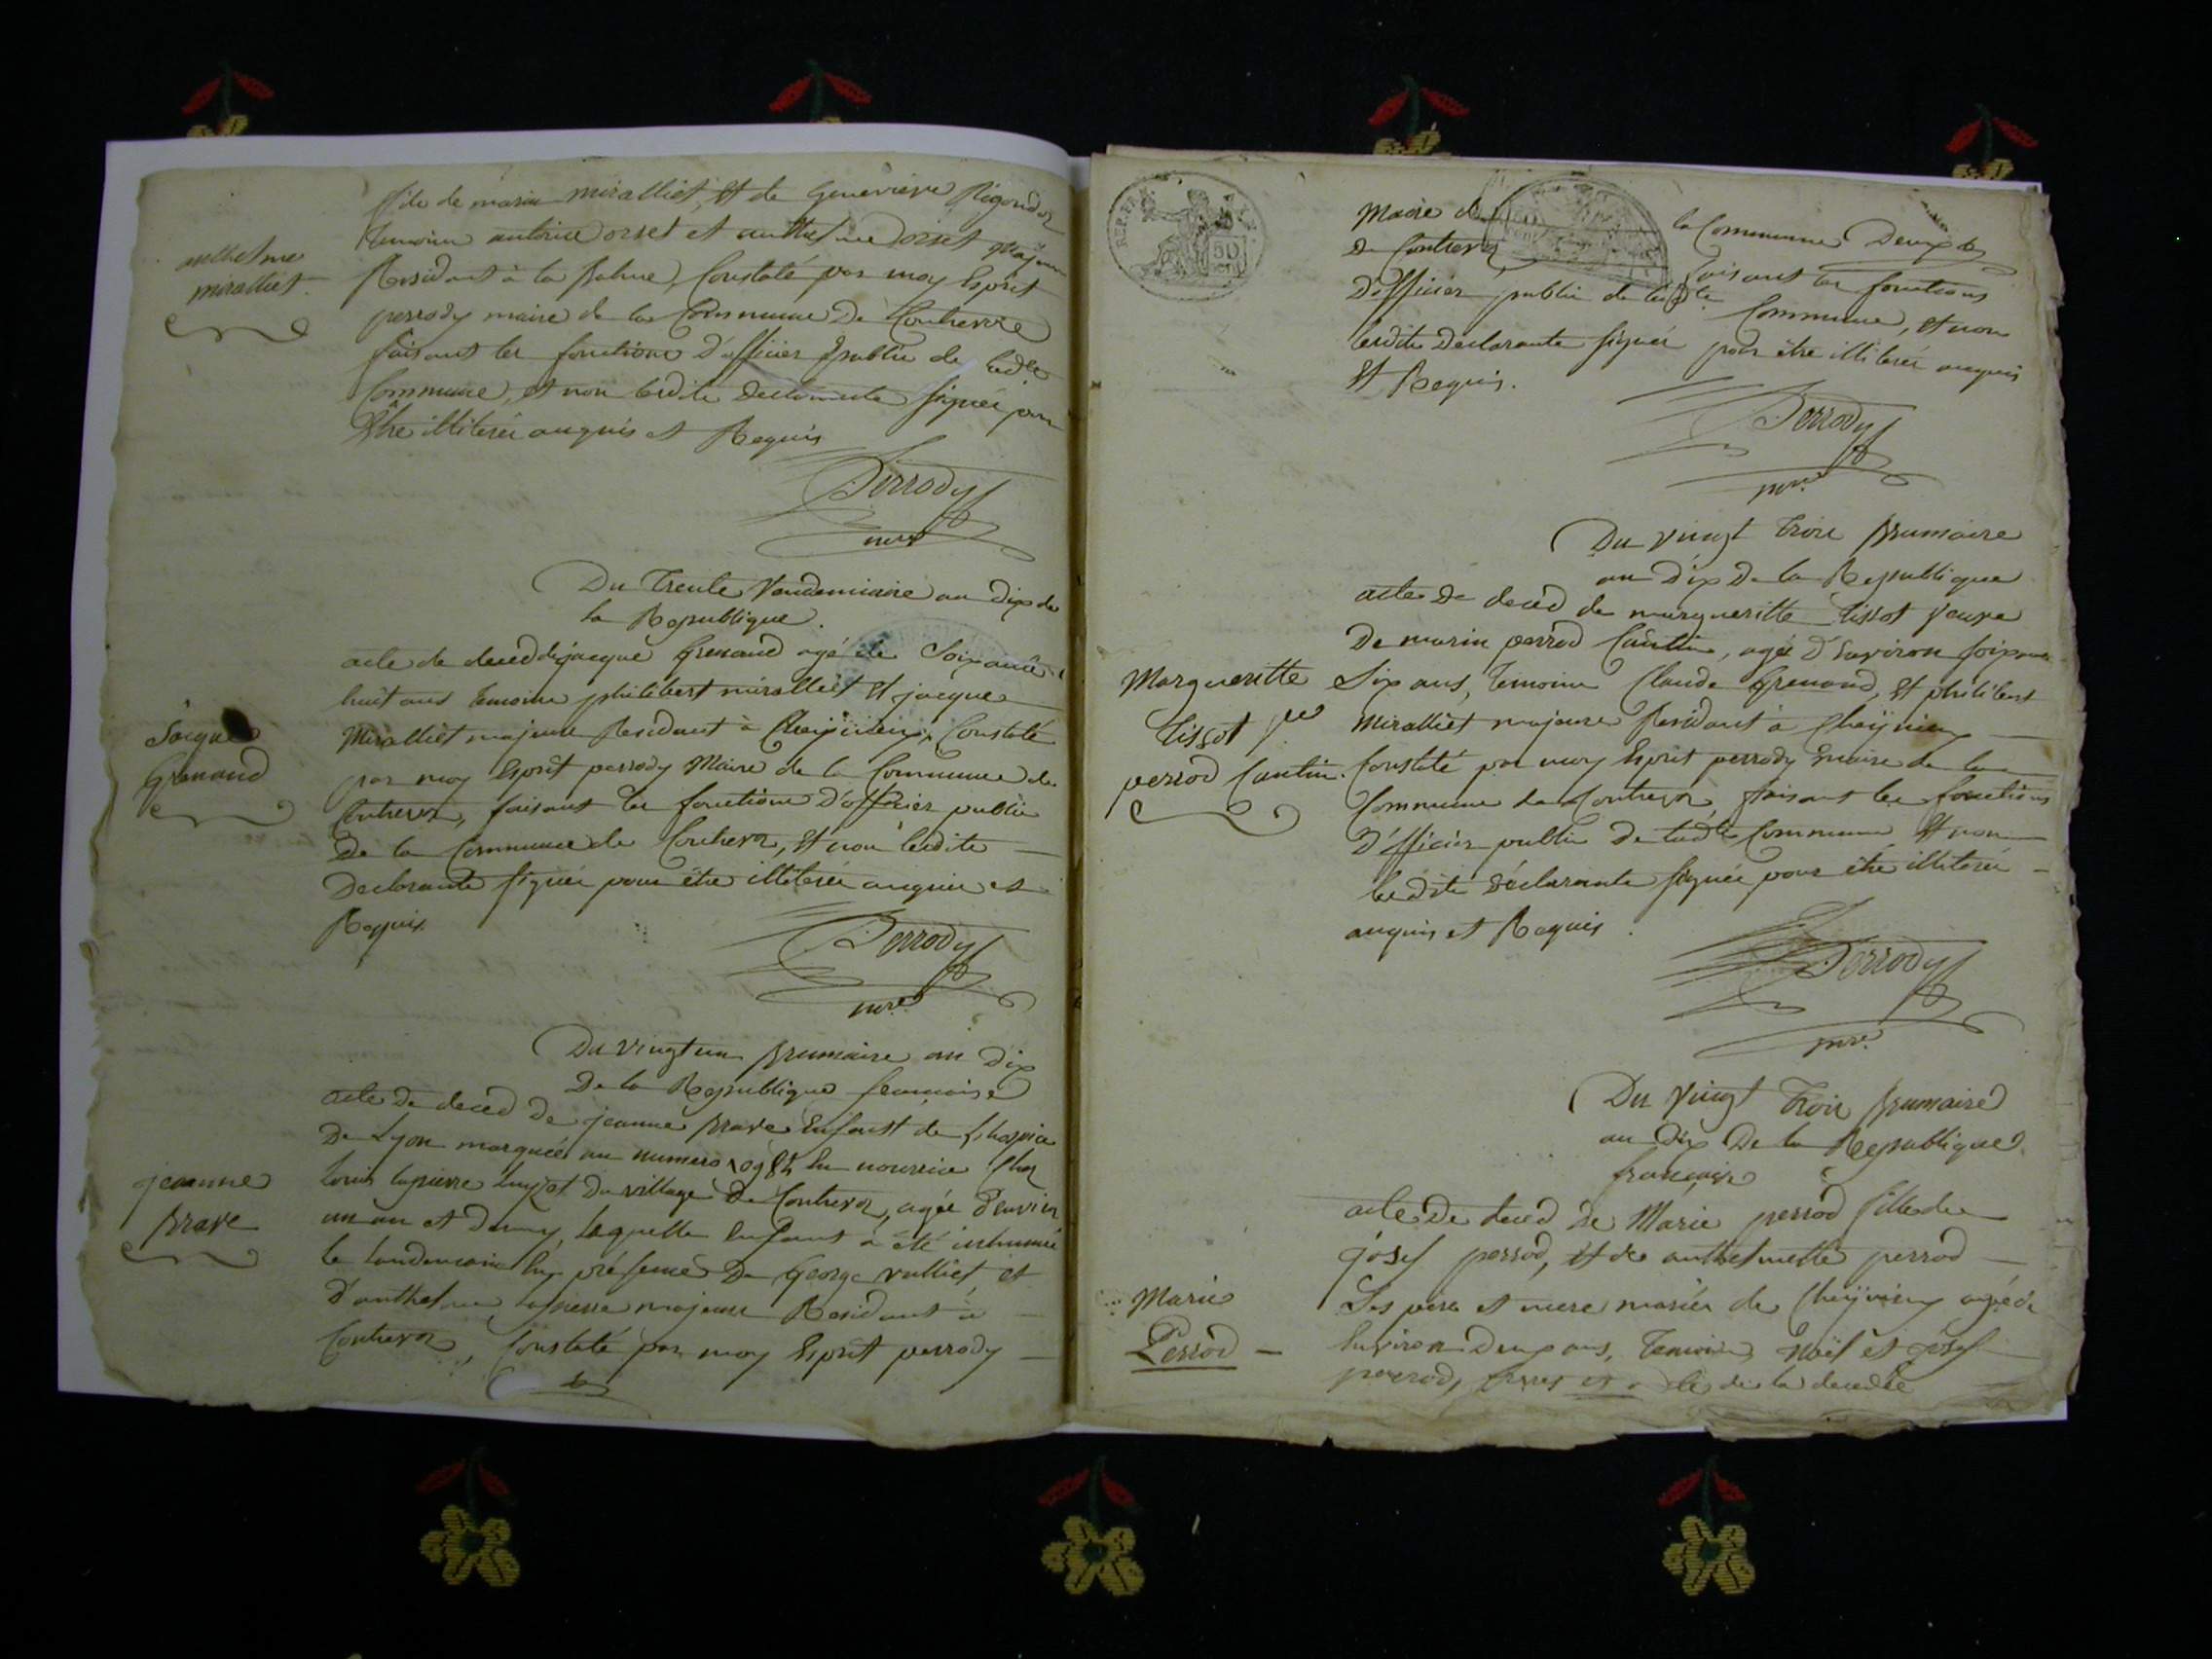 fils de marin miralliet, et de Genevieve Rigoudoz
temoins antoine orset et anthelme orset majeurs
anthelme
miralliet
Residant à la Balme, Constaté par moy Esprit
perrody maire de la Commune De Contrevoz
faisant les fonctions d'officier public de ladte
Commune, et non lesdits declarants signés pour
Etre illiterés enquis et Requis
Perrody
mre
Du Trente Vandemiaire an Dix de
la Republique.
acte de deced de jacque Grenaud agé de Soixante
huit ans temoins philibert miralliet et jacque
Miralliet majeurs Residant à Cheignieu, Constaté
Jacque
Grenaud
par moy Esprit perrody Maire de la Commune de
Contrevoz, faisant les fonctions D'officier public
De la Commune de Contrevoz, et non lesdits
Declarants signés pour être illiterés enquis et
Requis
Perrody
mre
Du vingt un Brumaire an Dix
De la Republique francoise
acte De deced De jeanne Brave Enfant de l'hospice
De Lyon marquée au numero 10984 En nourrice Chez
Louis lapierre du village De Contrevoz, agée D'environ
jeanne
Brave
un an et Demy, laquelle Enfant a été inhumée
le landemain En présence De George vulliet, et
D'anthelme lapierre majeurs Residant à
Contrevoz, Constaté par moy Esprit perrody
REP. FRA.
50
cen
Maire de la Commune
De Contrevoz faisant les fonctions
D'officier public de ladte Commune, et non
lesdits Declarants signés pour être illiterés enquis
et Requis.
Perrody
mre
Du vingt trois Brumaire
an Dix De la Republique
acte De deced de margueritte tissot veuve
De marin perrod Cautin, agée D'environ soixante
Margueritte
tissot ve
perrod Cautin.
Six ans, temoins Claude Grenaud, et philibert
Miralliet majeurs Residant à Cheignieu
Constaté par moy Esprit perrody maire de la
Commune de Contrevoz faisant les fonctions
D'officier public De ladte Commune et non
lesdits déclarants signés pour être illiterés
enquis et Requis.
Perrody
mre
Du Vingt Trois Brumaire
an Dix De la Republique
francoise
acte De deced De Marie perrod fille de
josef perrod, et de anthelmette perrod
Marie
Perrod
Ses père et mere mariés de Cheignieu agée de
Environ Deux ans, temoins Noël et josef
perrod, de la decedée